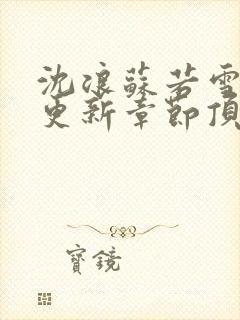 沈浪蘇若雪
更新章節頂
寶鏡